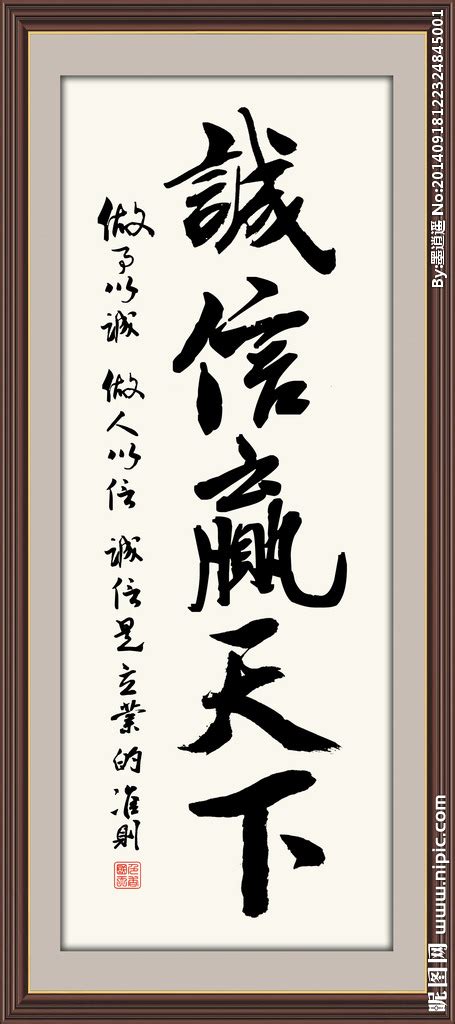 誠信贏天下
做事以誠 做人以信 誠信是立業的准則
By:墨逍遥 No:20140918122324845001
昵图网 www.nipic.com